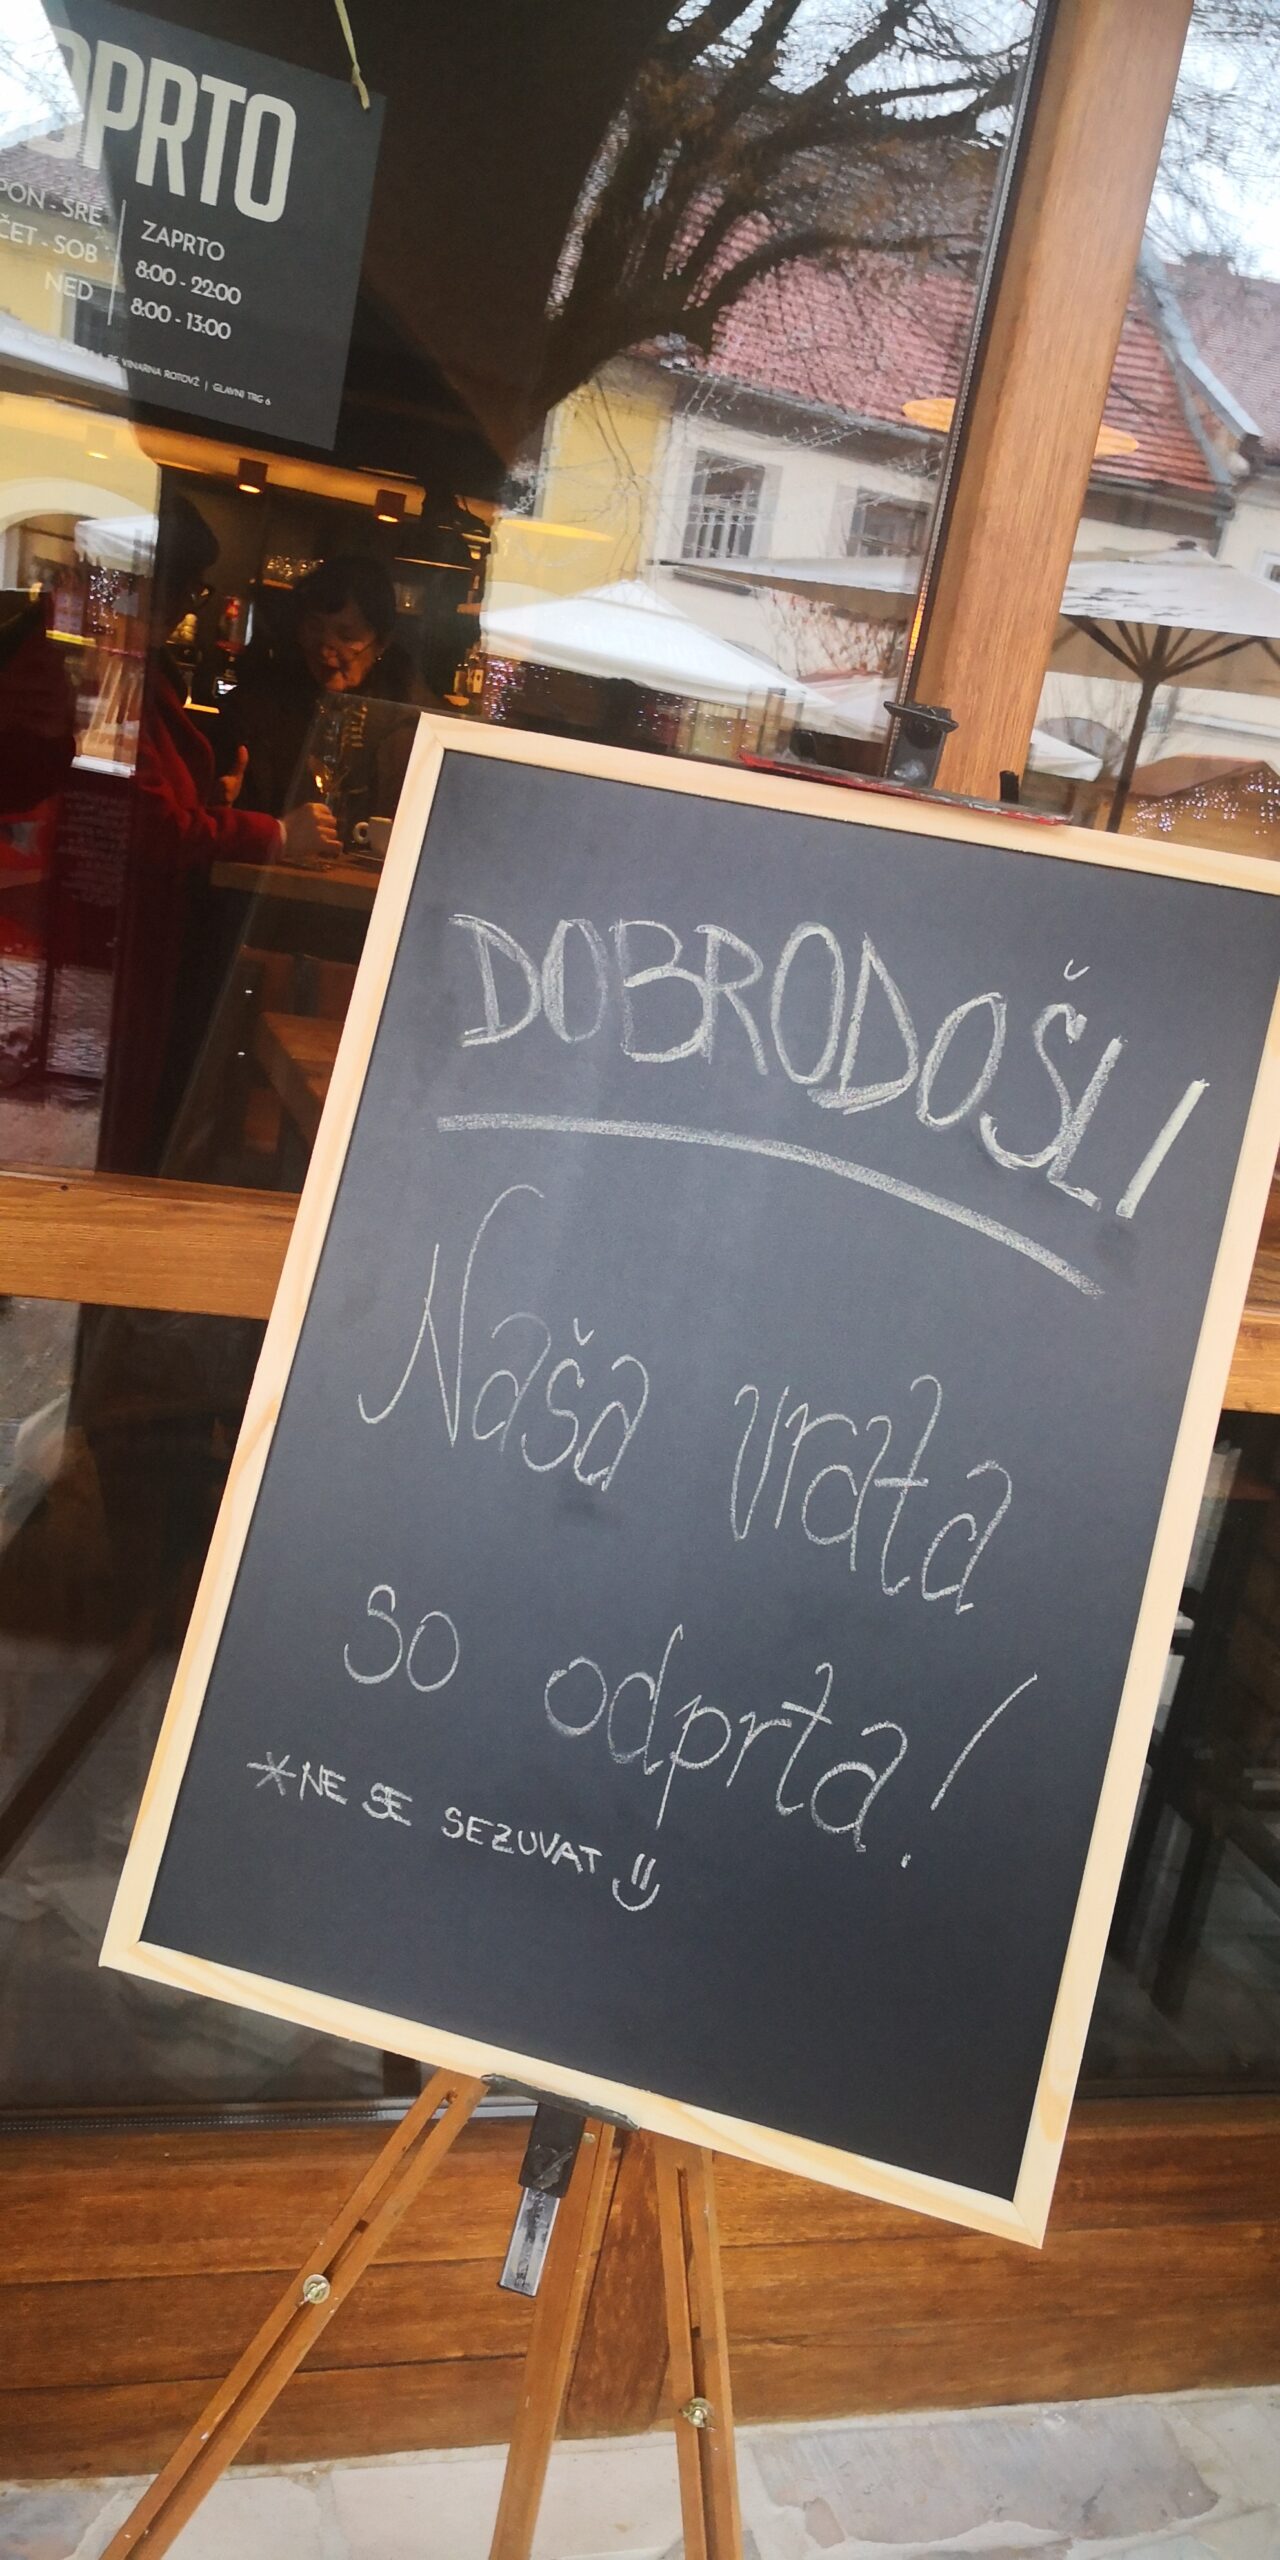 ODPRTO
PON - SRE ZAPRTO
ČET - SOB 8:00 - 22:00
NED 8:00 - 13:00
VINARNA ROTOVŽ | GLAVNI TRG 6
DOBRODOŠLI
Naša vrata
so odprta!
*NE SE SEZUVAT